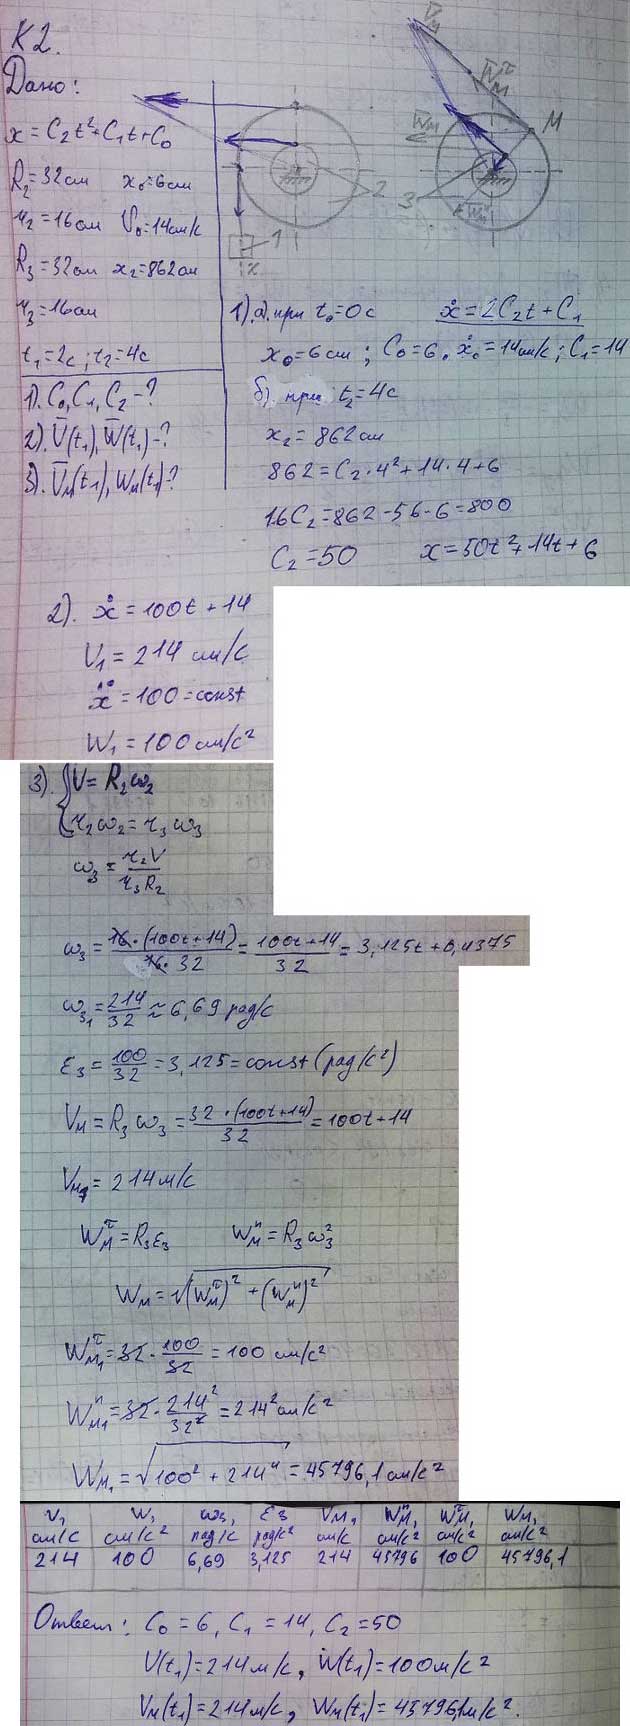 К2.
Дано:
x = C₂t² + C₁t + C₀
R₂=32см x₀=6см
r₂=16см V₀=14см/с
R₃=32см x₂=862см
r₃=16см
t₁=2с; t₂=4с
1). C₀, C₁, C₂ -?
2). V̅(t₁), W̅(t₁)-?
3). V̅м(t₁), Wм(t₁)-?
V̅м
W̅м^τ
W̅м
М
W̅м^n
2
3
1
x
1). а). при t₀=0с ẋ = 2C₂t + C₁
x₀=6см; C₀=6, ẋ₀=14см/с; C₁=14
б). при t₂=4с
x₂=862см
862=C₂·4²+14·4+6
16C₂=862-56-6=800
C₂=50 x=50t²+14t+6
2). ẋ=100t+14
V₁=214 см/с
ẍ=100=const
W₁=100см/с²
3). { V=R₂ω₂
r₂ω₂=r₃ω₃
ω₃ = r₂V / r₃R₂
ω₃ = 16·(100t+14) / 16·32 = 100t+14 / 32 = 3,125t+0,4375
ω₃₁ = 214/32 ≈ 6,69 рад/с
ε₃ = 100/32 = 3,125 = const (рад/с²)
Vм = R₃ω₃ = 32·(100t+14) / 32 = 100t+14
Vм₁ = 214м/с
Wм^τ = R₃ε₃ Wм^n = R₃ω₃²
Wм = √((Wм^τ)² + (Wм^n)²)
Wм₁^τ = 32 · 100/32 = 100 см/с²
Wм₁^n = 32 · 214²/32² = 214² см/с²
Wм₁ = √(100² + 214⁴) = 45796,1 см/с²
V₁ W₁ ω₃₁ ε₃ Vм₁ Wм₁^n Wм₁^τ Wм₁
см/с см/с² рад/с рад/с² см/с см/с² см/с² см/с²
214 100 6,69 3,125 214 45796 100 45796,1
Ответ: C₀=6, C₁=14, C₂=50
V(t₁)=214м/с, W(t₁)=100м/с²
Vм(t₁)=214м/с, Wм(t₁)=45796,1м/с².